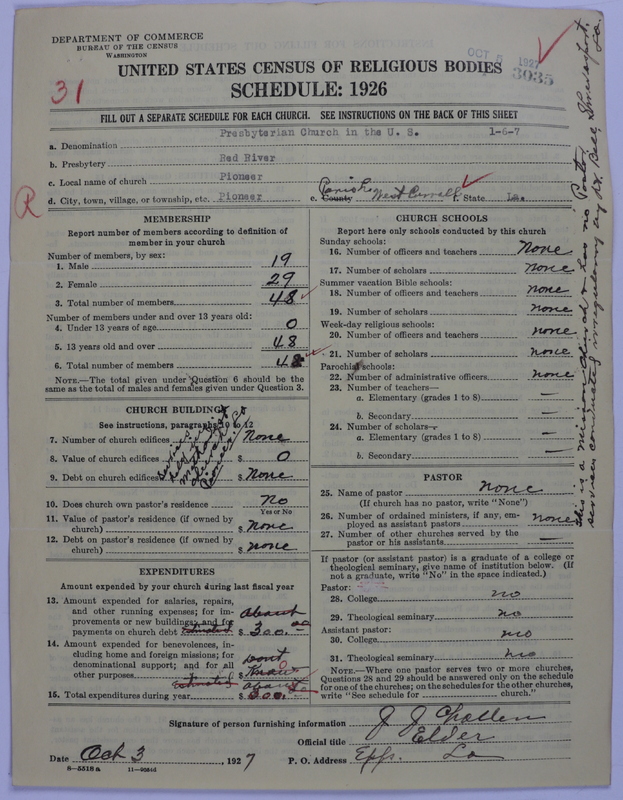 DEPARTMENT OF COMMERCE
BUREAU OF THE CENSUS
WASHINGTON
OCT 5 1927
3035
31
UNITED STATES CENSUS OF RELIGIOUS BODIES
SCHEDULE: 1926
FILL OUT A SEPARATE SCHEDULE FOR EACH CHURCH. SEE INSTRUCTIONS ON THE BACK OF THIS SHEET
a. Denomination Presbyterian Church in the U. S. 1-6-7
b. Presbytery Red River
c. Local name of church Pioneer
R
d. City, town, village, or township, etc. Pioneer e. County Parish West Carroll f. State La.
MEMBERSHIP
Report number of members according to definition of
member in your church
Number of members, by sex:
1. Male 19
2. Female 29
3. Total number of members 48
Number of members under and over 13 years old:
4. Under 13 years of age 0
5. 13 years old and over 48
6. Total number of members 48
NOTE.—The total given under Question 6 should be the
same as the total of males and females given under Question 3.
CHURCH BUILDINGS
See instructions, paragraphs 10 to 12
7. Number of church edifices None
8. Value of church edifices $ 0
9. Debt on church edifices $ None
Services
held in
Methodist
church
10. Does church own pastor's residence No
Yes or No
11. Value of pastor's residence (if owned by
church) $ None
12. Debt on pastor's residence (if owned by
church) $ None
EXPENDITURES
Amount expended by your church during last fiscal year
13. Amount expended for salaries, repairs,
and other running expenses; for im-
provements or new buildings; and for
payments on church debt estimated about $ 300.00
14. Amount expended for benevolences, in-
cluding home and foreign missions; for
denominational support; and for all
other purposes dont know 0
15. Total expenditures during year estimated about $ 300.00
CHURCH SCHOOLS
Report here only schools conducted by this church
Sunday schools:
16. Number of officers and teachers None
17. Number of scholars None
Summer vacation Bible schools:
18. Number of officers and teachers None
19. Number of scholars None
Week-day religious schools:
20. Number of officers and teachers None
21. Number of scholars None
Parochial schools:
22. Number of administrative officers None
23. Number of teachers—
a. Elementary (grades 1 to 8) —
b. Secondary —
24. Number of scholars—
a. Elementary (grades 1 to 8) —
b. Secondary —
PASTOR
25. Name of pastor None
(If church has no pastor, write "None")
26. Number of ordained ministers, if any, em-
ployed as assistant pastors None
27. Number of other churches served by the
pastor or his assistants —
If pastor (or assistant pastor) is a graduate of a college or
theological seminary, give name of institution below. (If
not a graduate, write "No" in the space indicated.)
Pastor:
28. College no
29. Theological seminary no
Assistant pastor:
30. College no
31. Theological seminary no
NOTE.—Where one pastor serves two or more churches,
Questions 28 and 29 should be answered only on the schedule
for one of the churches; on the schedules for the other churches,
write "See schedule for church."
This is a mission church & has no Pastor,
services conducted irregularly by Dr. Bell, Shreveport, La.
Signature of person furnishing information J J Chollen
Official title Elder
Date Oct 3, 1927 P. O. Address Epps. La
8—5518a 11—9094d